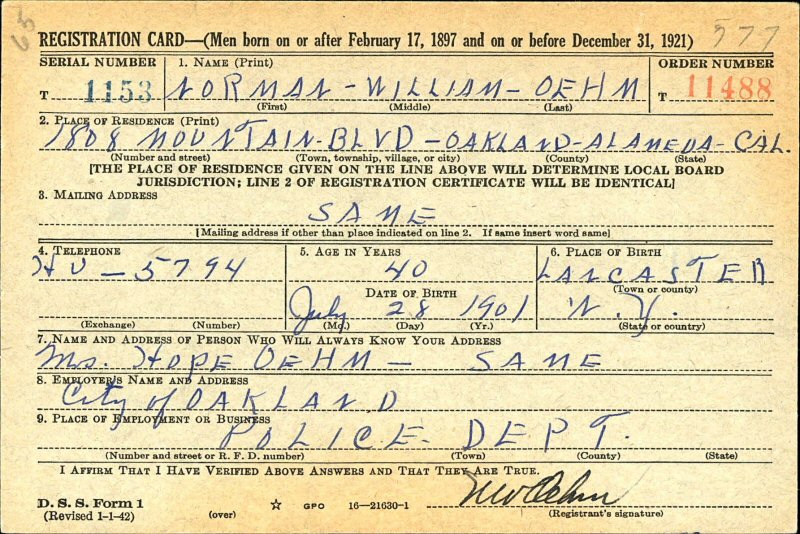 65
577
REGISTRATION CARD—(Men born on or after February 17, 1897 and on or before December 31, 1921)
SERIAL NUMBER
T 1153
1. NAME (Print)
NORMAN - WILLIAM - OEHM
(First) (Middle) (Last)
ORDER NUMBER
T 11488
2. PLACE OF RESIDENCE (Print)
1808 MOUNTAIN-BLVD - OAKLAND - ALAMEDA - CAL.
(Number and street) (Town, township, village, or city) (County) (State)
[THE PLACE OF RESIDENCE GIVEN ON THE LINE ABOVE WILL DETERMINE LOCAL BOARD
JURISDICTION; LINE 2 OF REGISTRATION CERTIFICATE WILL BE IDENTICAL]
3. MAILING ADDRESS
SAME
[Mailing address if other than place indicated on line 2. If same insert word same]
4. TELEPHONE
HU - 5794
(Exchange) (Number)
5. AGE IN YEARS
40
DATE OF BIRTH
July 28 1901
(Mo.) (Day) (Yr.)
6. PLACE OF BIRTH
LANCASTER
(Town or county)
N.Y.
(State or country)
7. NAME AND ADDRESS OF PERSON WHO WILL ALWAYS KNOW YOUR ADDRESS
Mrs. HOPE OEHM - SAME
8. EMPLOYER'S NAME AND ADDRESS
City of OAKLAND
9. PLACE OF EMPLOYMENT OR BUSINESS
POLICE DEPT.
(Number and street or R. F. D. number) (Town) (County) (State)
I AFFIRM THAT I HAVE VERIFIED ABOVE ANSWERS AND THAT THEY ARE TRUE.
D. S. S. Form 1
(Revised 1-1-42) (over) ☆ GPO 16—21630-1
NW Oehm
(Registrant's signature)